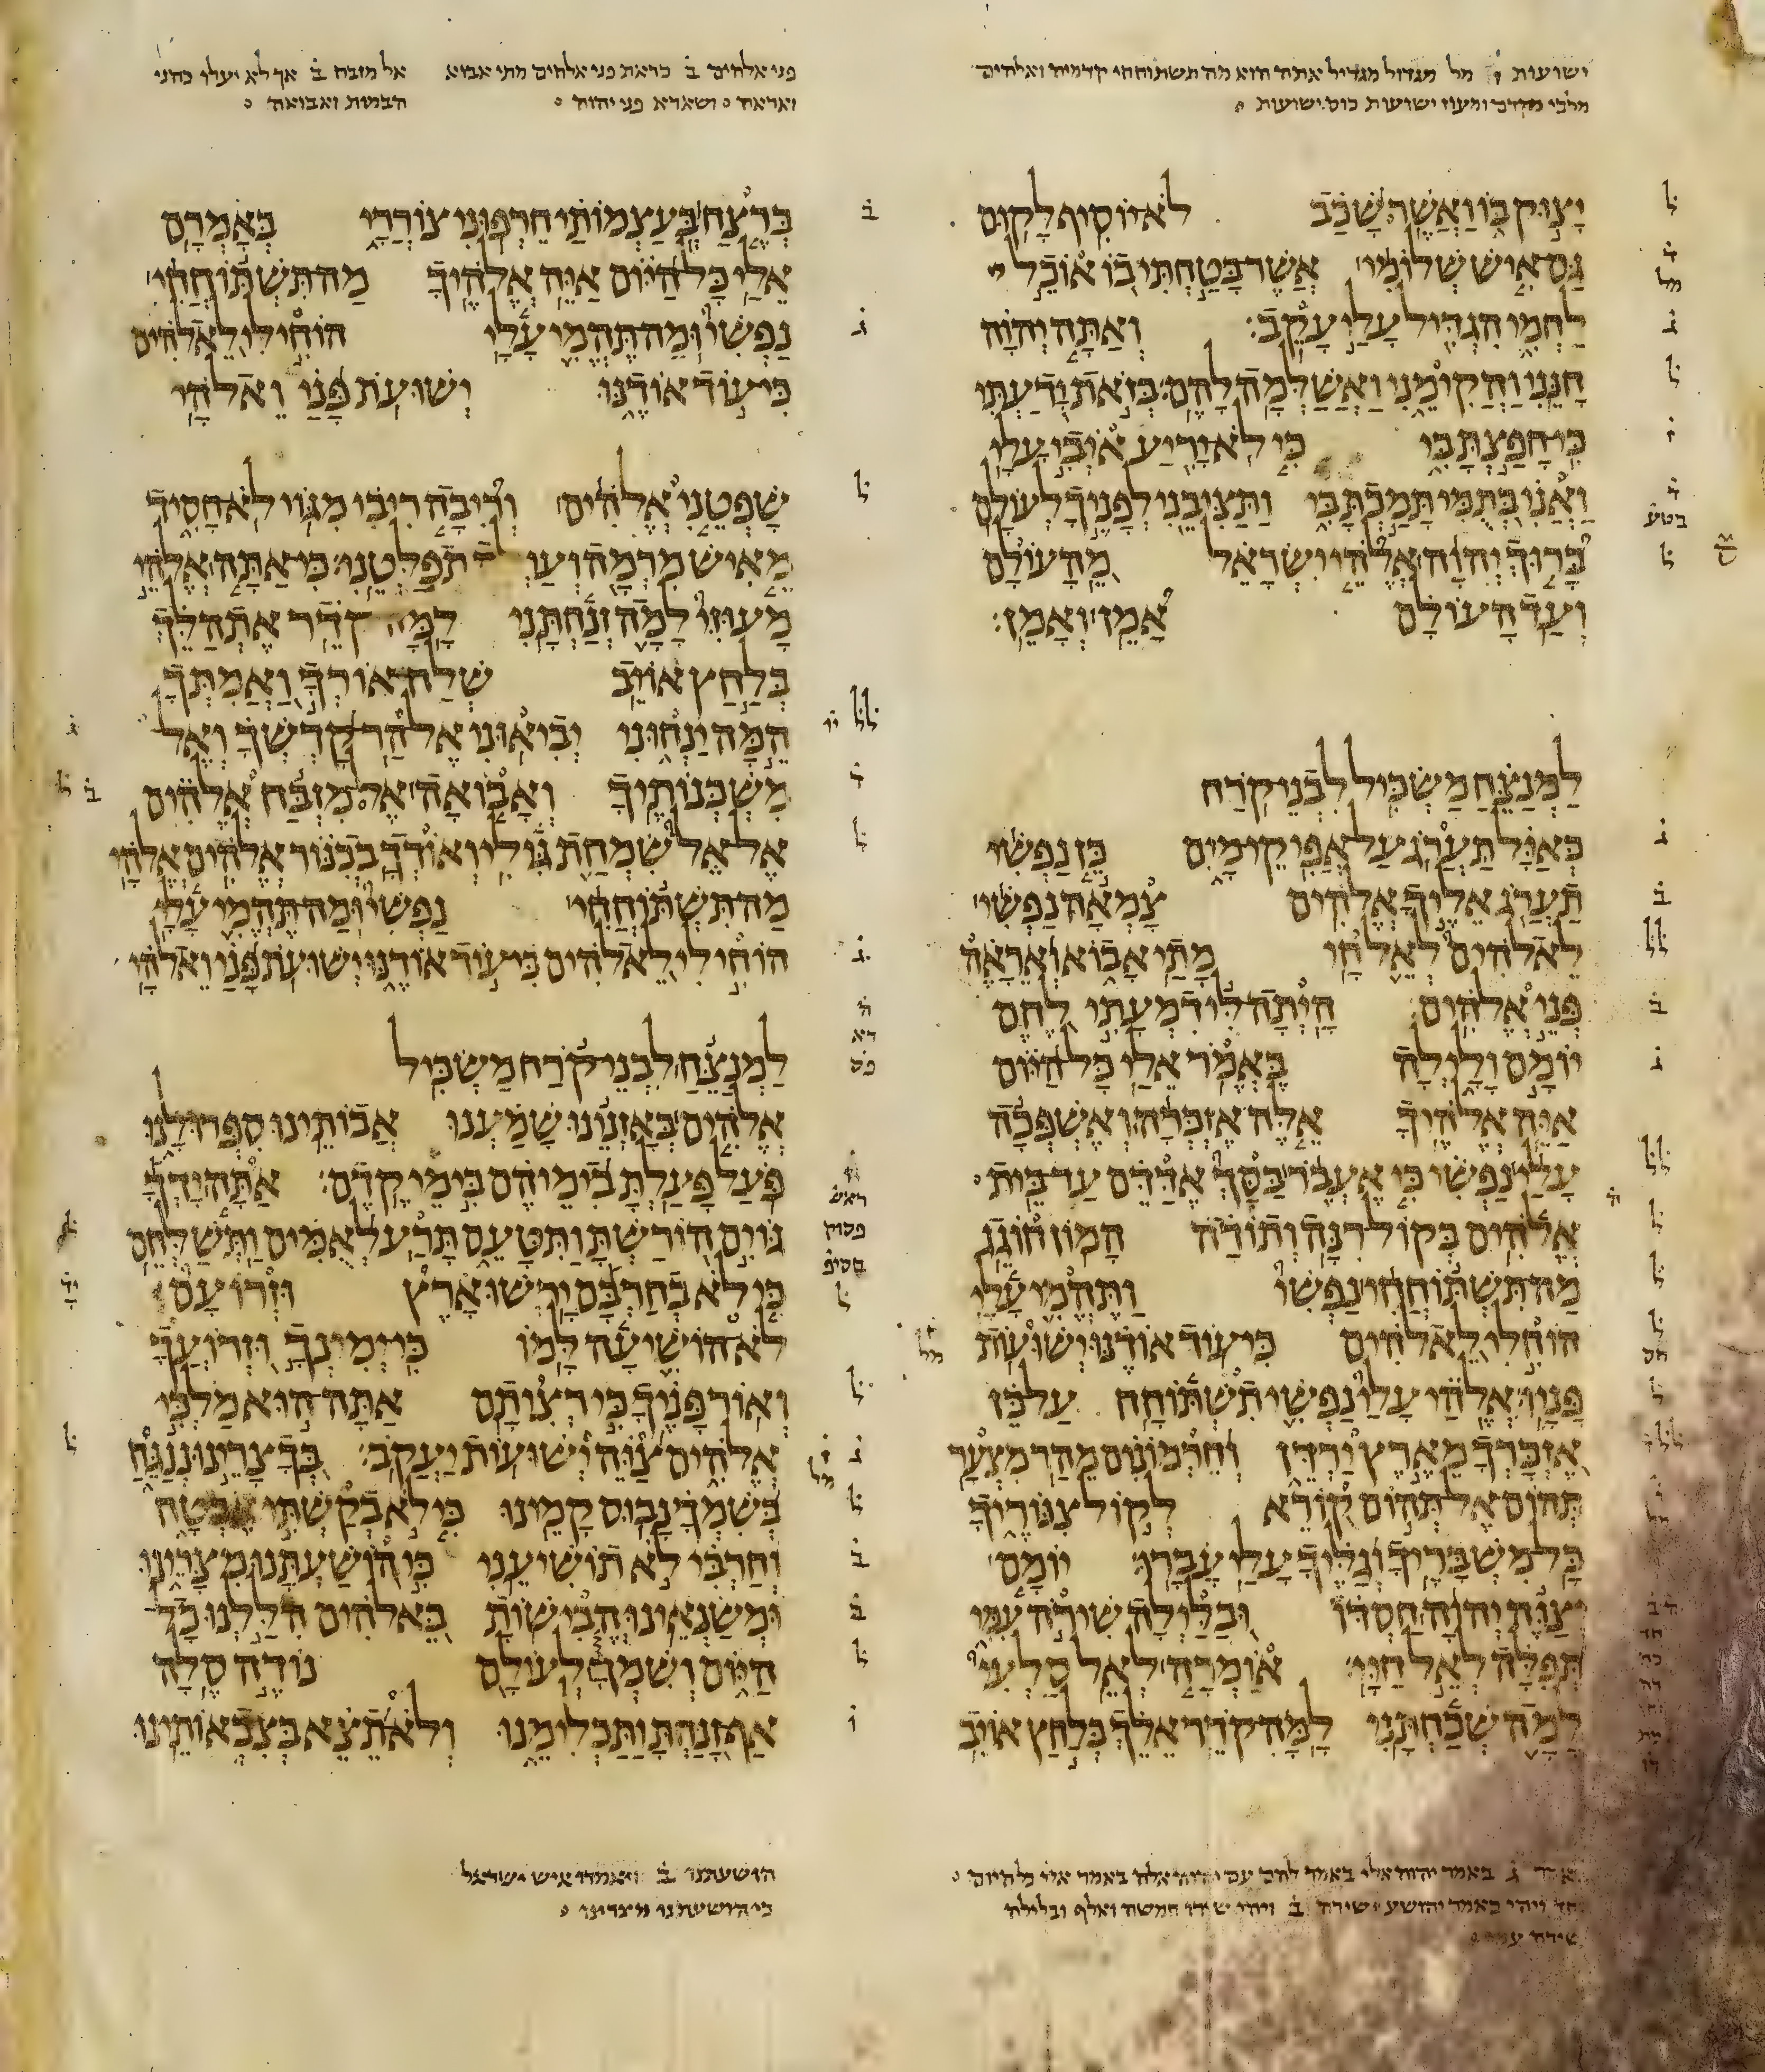 ישועות ו̇ מל מגדול מגדיל אתה הוא מה תשתוחחי קדמיה ואלהים
מלכי מקדם ומעוז ישועות כוס ישועות
יצוק בו ואשר שכב לא יוסיף לקום
גם איש שלומי אשר בטחתי בו אוכל
לחמי הגדיל עלי עקב׃ ואתה יהוה
חנני והקימני ואשלמה להם׃ בזאת ידעתי
כי חפצת בי כי לא יריע איבי עלי
ואני בתמי תמכת בי ותציבני לפניך לעולם
ברוך יהוה אלהי ישראל מהעולם
ועד העולם אמן ואמן׃
למנצח משכיל לבני קרח
כאיל תערג על אפיקי מים כן נפשי
תערג אליך אלהים צמאה נפשי
לאלהים לאל חי מתי אבוא ואראה
פני אלהים היתה לי דמעתי לחם
יומם ולילה באמר אלי כל היום
איה אלהיך אלה אזכרה ואשפכה
עלי נפשי כי אעבר בסך אדדם עד בית
אלהים בקול רנה ותודה המון חוגג
מה תשתוחחי נפשי ותהמי עלי
הוחלי לאלהים כי עוד אודנו ישועות
פניו׃ אלהי עלי נפשי תשתוחח על כן
אזכרך מארץ ירדן וחרמונים מהר מצער
תהום אל תהום קורא לקול צנוריך
כל משבריך וגליך עלי עברו יומם
יצוה יהוה חסדו ובלילה שירה עמי
תפלה לאל חיי אומרה לאל סלעי
למה שכחתני למה קדר אלך בלחץ אויב
באמר יהוה אלי באמר להם עם
ויהי כאמר יהושע שירה ב̇ ויהי שירו חמשה ואלף ובלילה
שירה עמי
פני אלהים ב̇ כראת פני אלהים מתי אבוא
ואראה ושארא פני יהוה
אל מזבח ב̇ אך לא יעלו כהני
הבמות ואבואה
ברצח בעצמותי חרפוני צוררי באמרם
אלי כל היום איה אלהיך מה תשתוחחי
נפשי ומה תהמי עלי הוחילי לאלהים
כי עוד אודנו ישועת פני ואלהי
שפטני אלהים וריבה ריבי מגוי לא חסיד
מאיש מרמה ועולה תפלטני׃ כי אתה אלהי
מעוזי למה זנחתני למה קדר אתהלך
בלחץ אויב שלח אורך ואמתך
המה ינחוני יביאוני אל הר קדשך ואל
משכנותיך ואבואה אל מזבח אלהים
אל אל שמחת גילי ואודך בכנור אלהים אלהי
מה תשתוחחי נפשי ומה תהמי עלי
הוחילי לאלהים כי עוד אודנו ישועת פני ואלהי
למנצח לבני קרח משכיל
אלהים באזנינו שמענו אבותינו ספרו לנו
פעל פעלת בימיהם בימי קדם׃ אתה ידך
גוים הורשת ותטעם תרע לאמים ותשלחם
כי לא בחרבם ירשו ארץ וזרועם
לא הושיעה למו כי ימינך וזרועך
ואור פניך כי רציתם אתה הוא מלכי
אלהים צוה ישועות יעקב׃ בך צרינו ננגח
בשמך נבוס קמינו כי לא בקשתי אבטח
וחרבי לא תושיעני כי הושעתנו מצרינו
ומשנאינו הבישות באלהים הללנו כל
היום ושמך לעולם נודה סלה
אף זנחת ותכלימנו ולא תצא בצבאותינו
הושעתנו ב̇ ויאמרו איש ישראל
כי הושעתנו מצרינו